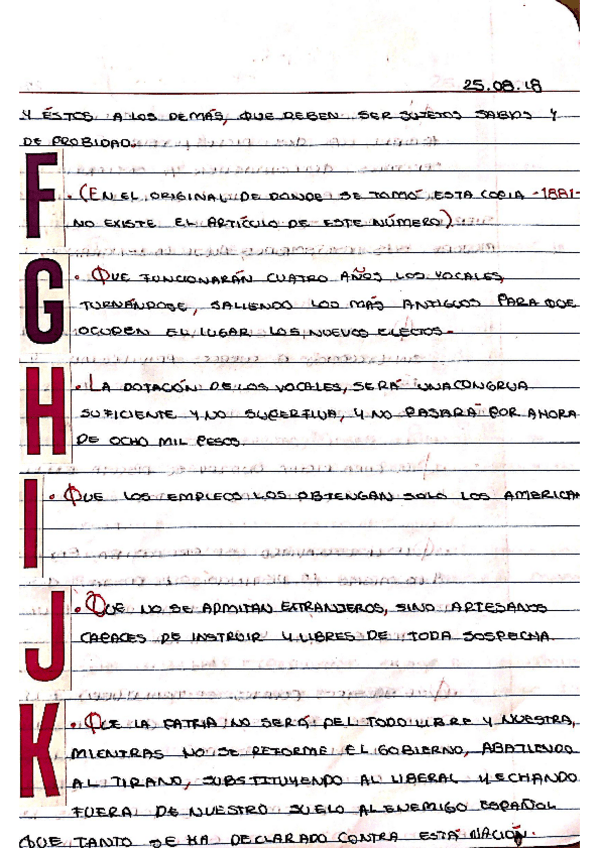 25.08.18
Y ÉSTOS A LOS DEMÁS, QUE DEBEN SER SUJETOS SABIOS Y
DE PROBIDAD.
F. (EN EL ORIGINAL DE DONDE SE TOMÓ ESTA COPIA -1881-
NO EXISTE EL ARTÍCULO DE ESTE NÚMERO).
G. QUE FUNCIONARÁN CUATRO AÑOS LOS VOCALES,
TURNÁNDOSE, SALIENDO LOS MÁS ANTIGUOS PARA QUE
OCUPEN EL LUGAR LOS NUEVOS ELECTOS.
H. LA DOTACIÓN DE LOS VOCALES, SERÁ UNA CONGRUA
SUFICIENTE Y NO SUPERFLUA, Y NO PASARÁ POR AHORA
DE OCHO MIL PESOS.
I. QUE LOS EMPLEOS LOS OBTENGAN SOLO LOS AMERICAN
J. QUE NO SE ADMITAN EXTRANJEROS, SINO ARTESANOS
CAPACES DE INSTRUIR Y LIBRES DE TODA SOSPECHA.
K. QUE LA PATRIA NO SERÁ DEL TODO LIBRE Y NUESTRA,
MIENTRAS NO SE REFORME EL GOBIERNO, ABATIENDO
AL TIRANO, SUBSTITUYENDO AL LIBERAL Y ECHANDO
FUERA DE NUESTRO SUELO AL ENEMIGO ESPAÑOL
QUE TANTO SE HA DECLARADO CONTRA ESTA NACIÓN.